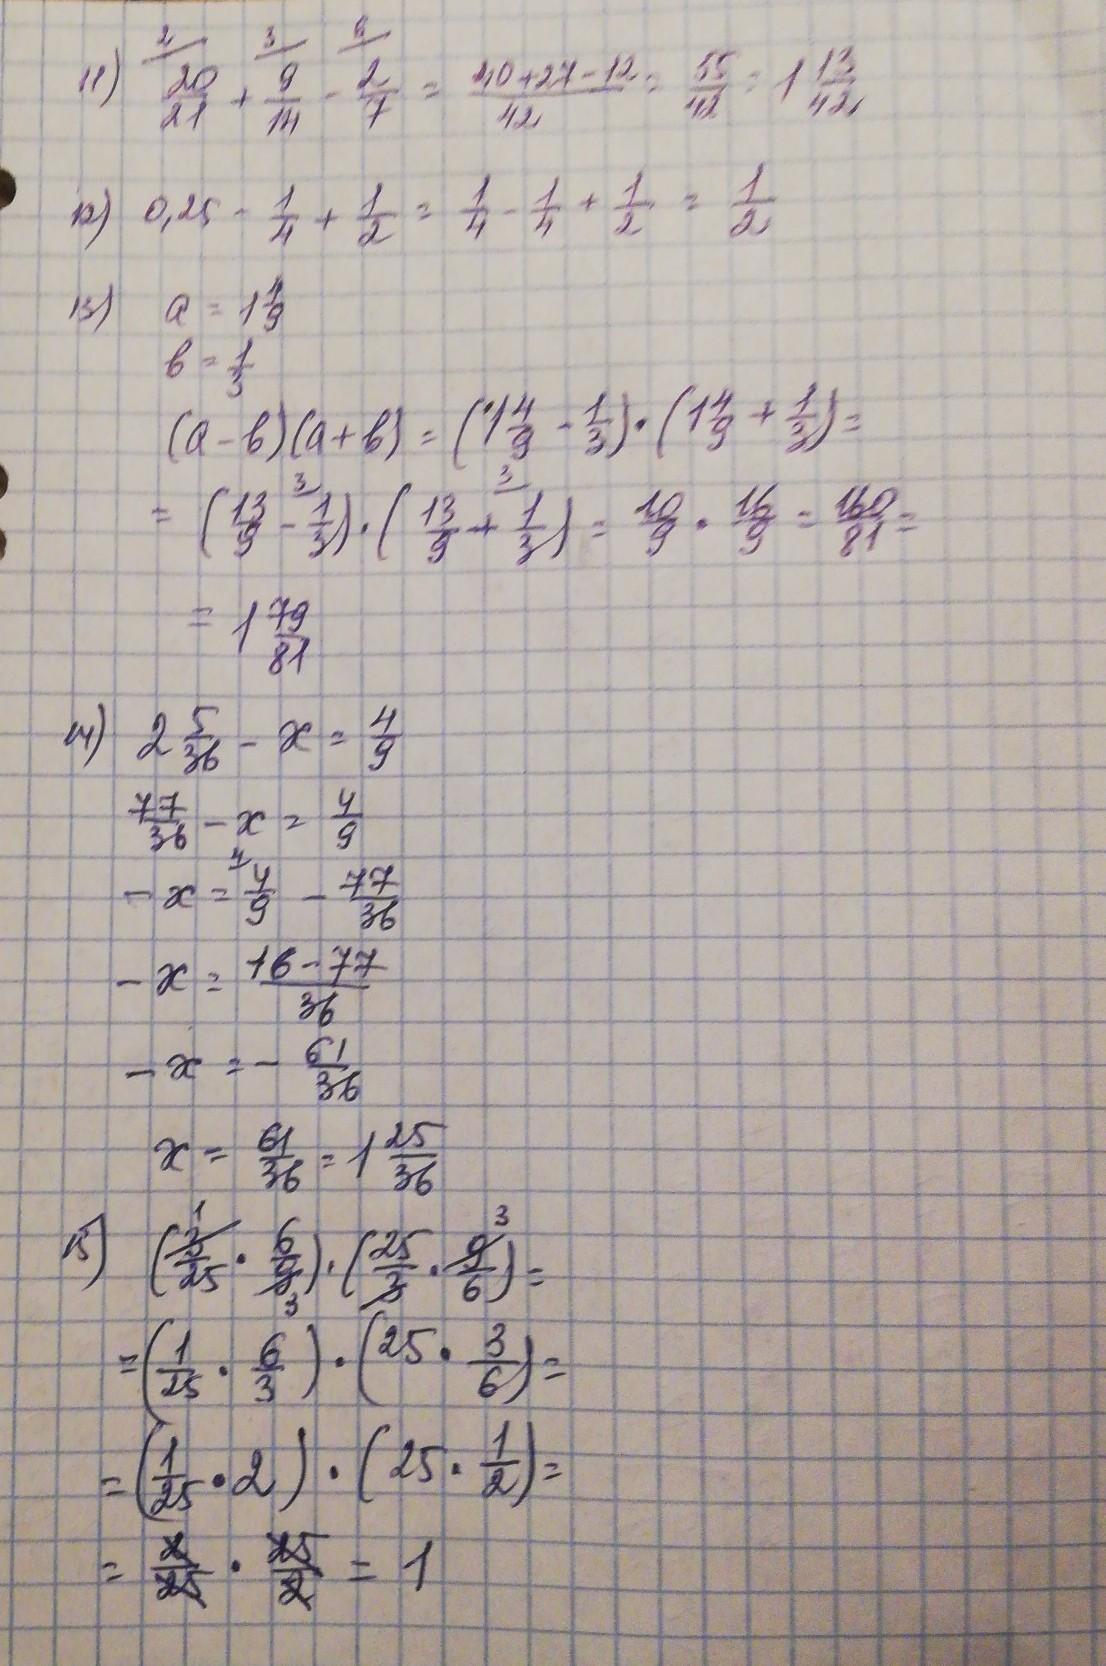 2 3 6
11) 20/21 + 9/14 - 2/7 = (40+27-12)/42 = 55/42 = 1 13/42
12) 0,25 - 1/4 + 1/2 = 1/4 - 1/4 + 1/2 = 1/2
13) a = 1 4/9
b = 1/3
(a-b)(a+b) = (1 4/9 - 1/3)·(1 4/9 + 1/3) =
3 3
= (13/9 - 1/3)·(13/9 + 1/3) = 10/9 · 16/9 = 160/81 =
= 1 79/81
14) 2 5/36 - x = 4/9
77/36 - x = 4/9
4
- x = 4/9 - 77/36
- x = (16-77)/36
- x = - 61/36
x = 61/36 = 1 25/36
1 3
15) (3/25 · 6/9)·(25/3 · 9/6) =
3
= (1/25 · 6/3)·(25 · 3/6) =
= (1/25 · 2)·(25 · 1/2) =
= 2/25 · 25/2 = 1